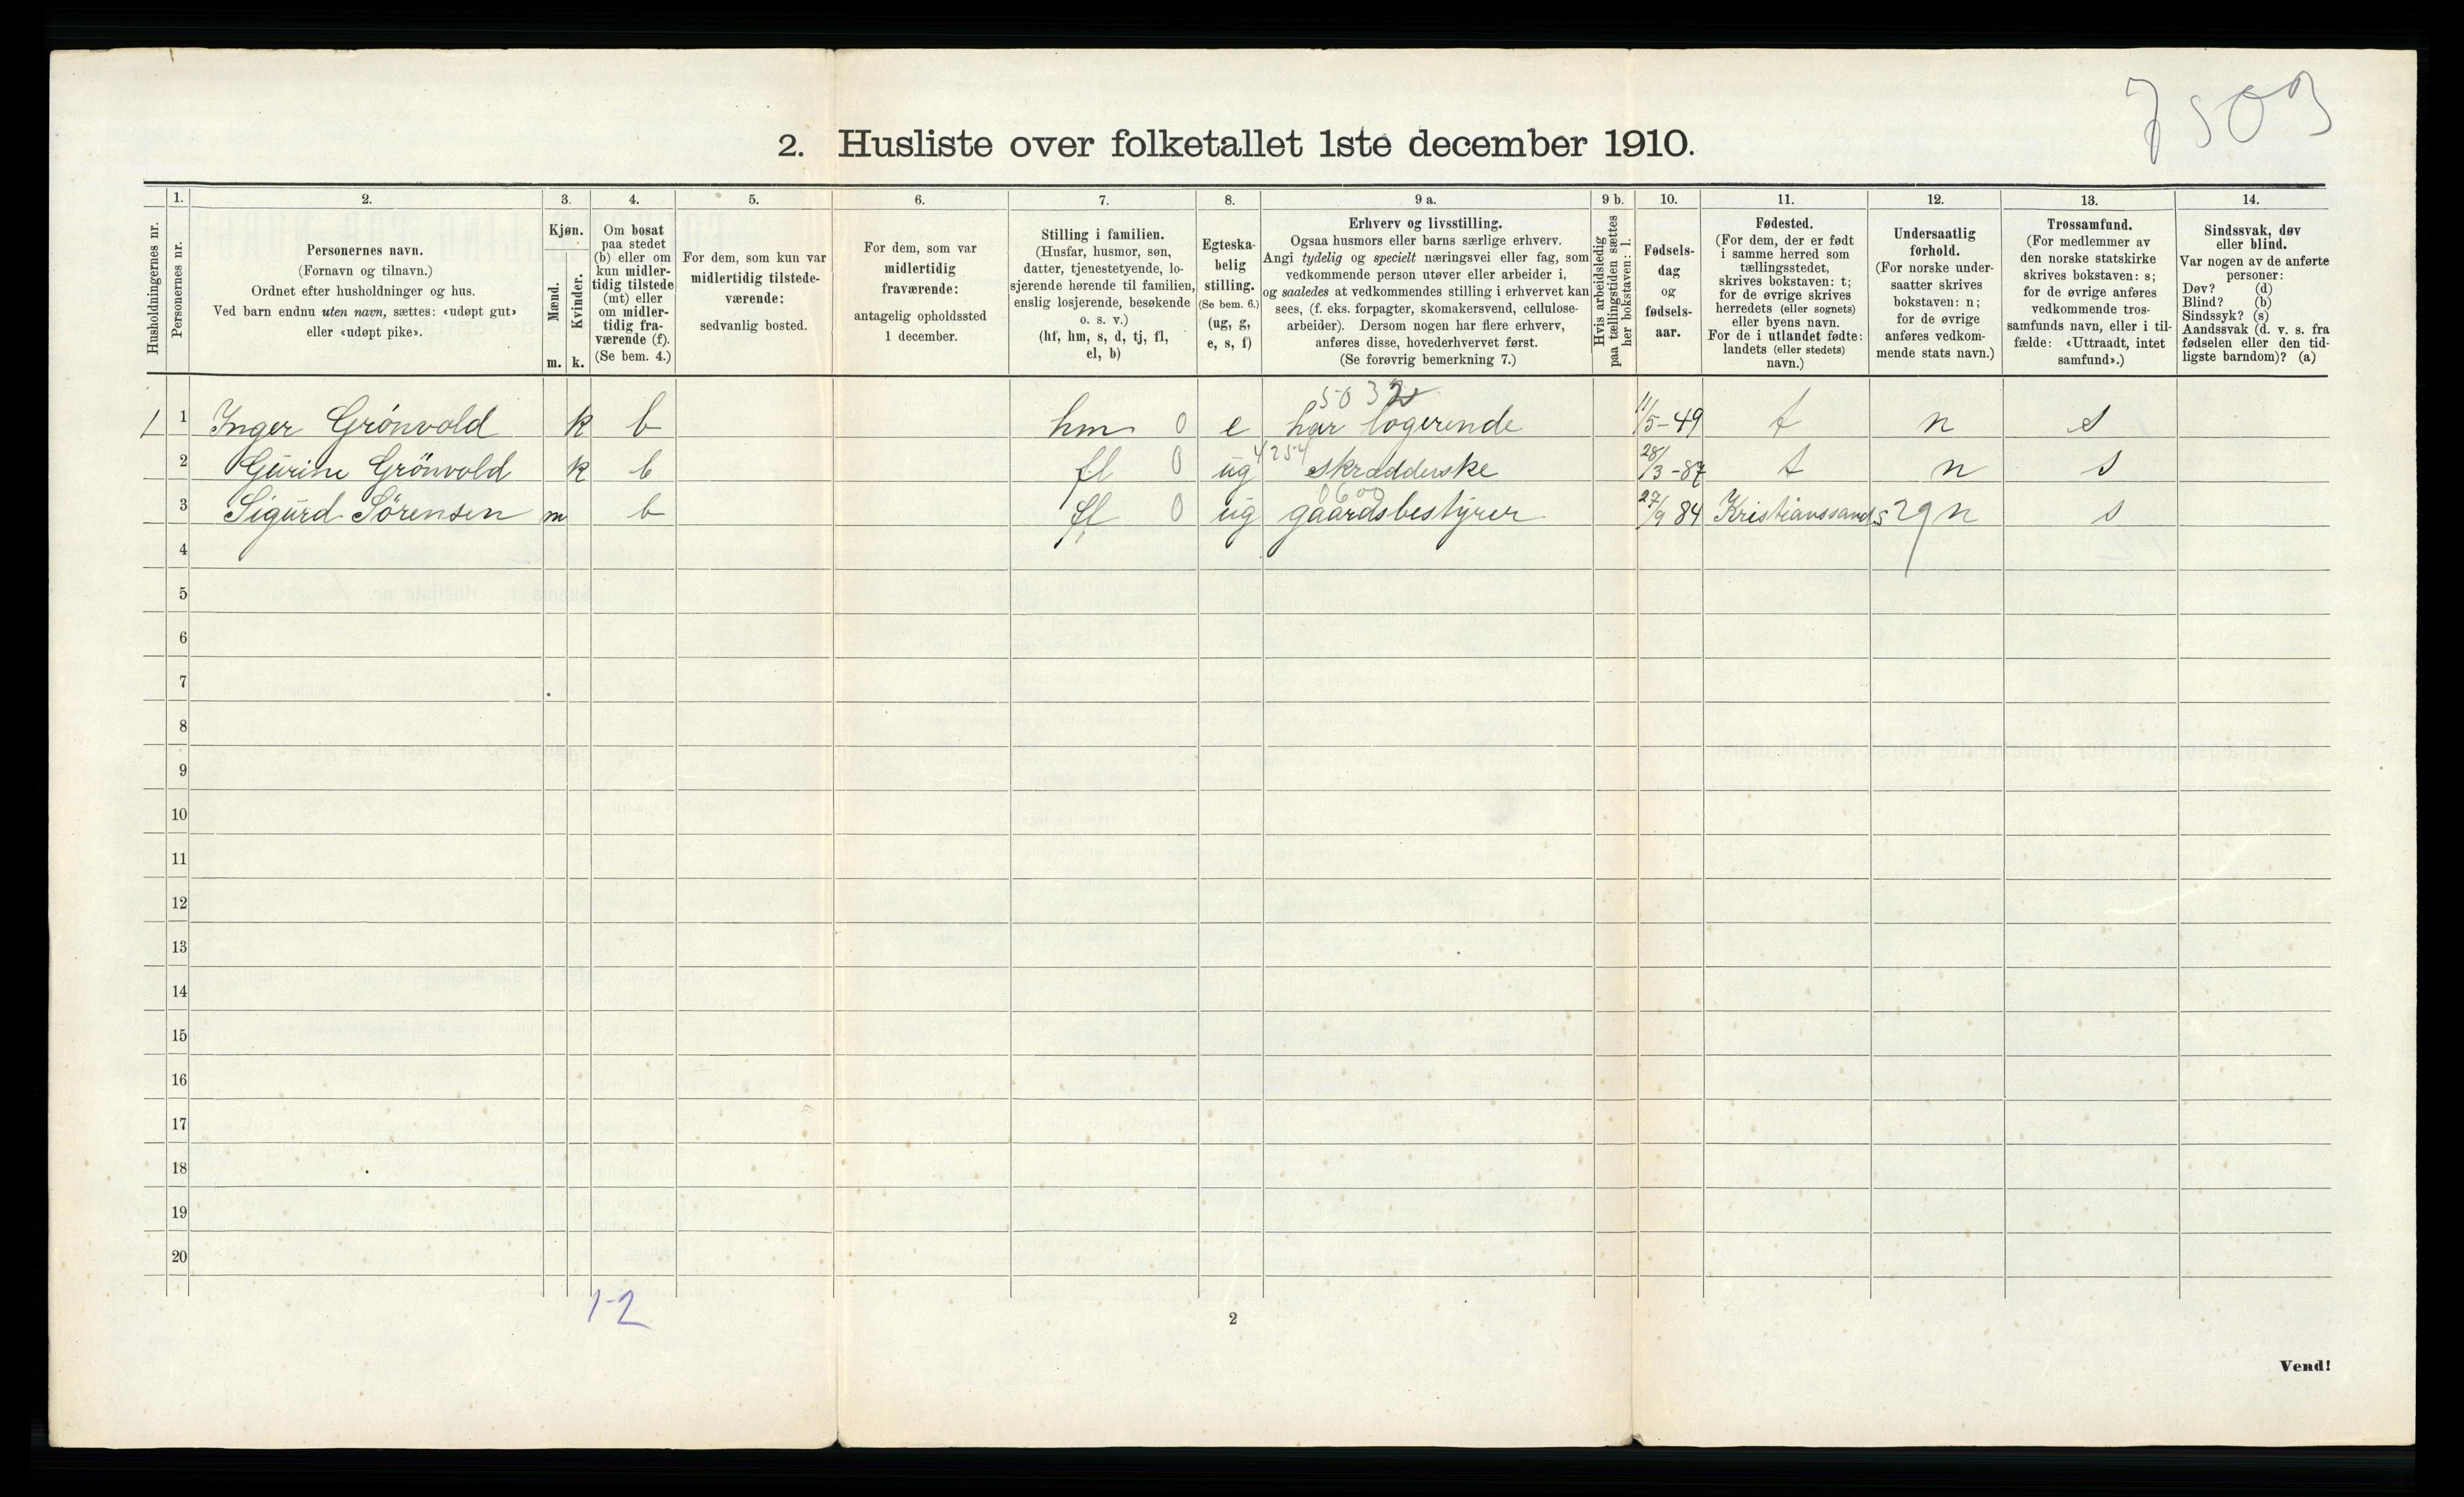 7503
2. Husliste over folketallet 1ste december 1910.
Husholdningernes nr.
1.
Personernes nr.
2.
Personernes navn.
(Fornavn og tilnavn.)
Ordnet efter husholdninger og hus.
Ved barn endnu uten navn, sættes: «udøpt gut»
eller «udøpt pike».
3.
Kjøn.
Mænd.
Kvinder.
m. k.
4.
Om bosat
paa stedet
(b) eller om
kun midler-
tidig tilstede
(mt) eller
om midler-
tidig fra-
værende (f).
(Se bem. 4.)
5.
For dem, som kun var
midlertidig tilstede-
værende:
sedvanlig bosted.
6.
For dem, som var
midlertidig
fraværende:
antagelig opholdssted
1 december.
7.
Stilling i familien.
(Husfar, husmor, søn,
datter, tjenestetyende, lo-
sjerende hørende til familien,
enslig losjerende, besøkende
o. s. v.)
(hf, hm, s, d, tj, fl,
el, b)
8.
Egteska-
belig
stilling.
(Se bem. 6.)
(ug, g,
e, s, f)
9 a.
Erhverv og livsstilling.
Ogsaa husmors eller barns særlige erhverv.
Angi tydelig og specielt næringsvei eller fag, som
vedkommende person utøver eller arbeider i,
og saaledes at vedkommendes stilling i erhvervet kan
sees, (f. eks. forpagter, skomakersvend, cellulose-
arbeider). Dersom nogen har flere erhverv,
anføres disse, hovederhvervet først.
(Se forøvrig bemerkning 7.)
9 b.
Hvis arbeidsledig
paa tællingstiden sættes
her bokstaven: l.
10.
Fødsels-
dag
og
fødsels-
aar.
11.
Fødested.
(For dem, der er født
i samme herred som
tællingsstedet,
skrives bokstaven: t;
for de øvrige skrives
herredets (eller sognets)
eller byens navn.
For de i utlandet fødte:
landets (eller stedets)
navn.)
12.
Undersaatlig
forhold.
(For norske under-
saatter skrives
bokstaven: n;
for de øvrige
anføres vedkom-
mende stats navn.)
13.
Trossamfund.
(For medlemmer av
den norske statskirke
skrives bokstaven: s;
for de øvrige anføres
vedkommende tros-
samfunds navn, eller i til-
fælde: «Uttraadt, intet
samfund».)
14.
Sindssvak, døv
eller blind.
Var nogen av de anførte
personer:
Døv? (d)
Blind? (b)
Sindssyk? (s)
Aandssvak (d. v. s. fra
fødselen eller den tid-
ligste barndom)? (a)
1 1 Inger Grönvold k b hm 0 e har logerende 11/5-49 t n s
2 Gurine Grönvold k b fl 0 ug 4254 skrædderske 28/3-87 t n s
0600
3 Sigurd Sörensen m b fl 0 ug gaardsbestyrer 27/9 84 Kristianssand S 29 n s
4
5
6
7
8
9
10
11
12
13
14
15
16
17
18
19
20
1-2
2
Vend!